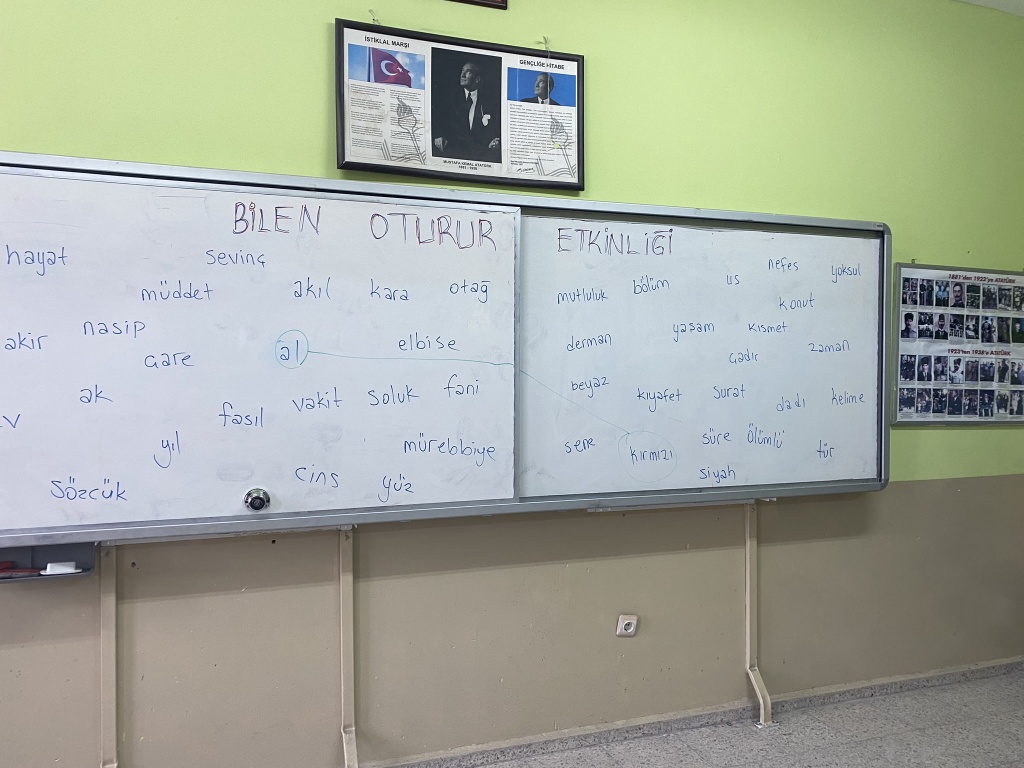 İSTİKLAL MARŞI
GENÇLİĞE HİTABE
MUSTAFA KEMAL ATATÜRK
1881 - 1938
BİLEN OTURUR ETKİNLİĞİ
hayat sevinç
müddet akıl kara otağ
akir nasip
çare al elbise
ak fasıl vakit soluk fani
v
yıl mürebbiye
sözcük cins yüz
nefes yoksul
mutluluk bölüm us
konut
derman yaşam kısmet
çadır zaman
beyaz kıyafet surat dadı kelime
sene kırmızı süre ölümlü tür
siyah
1881'den 1922'ye ATATÜRK
1923'ten 1938'e ATATÜRK